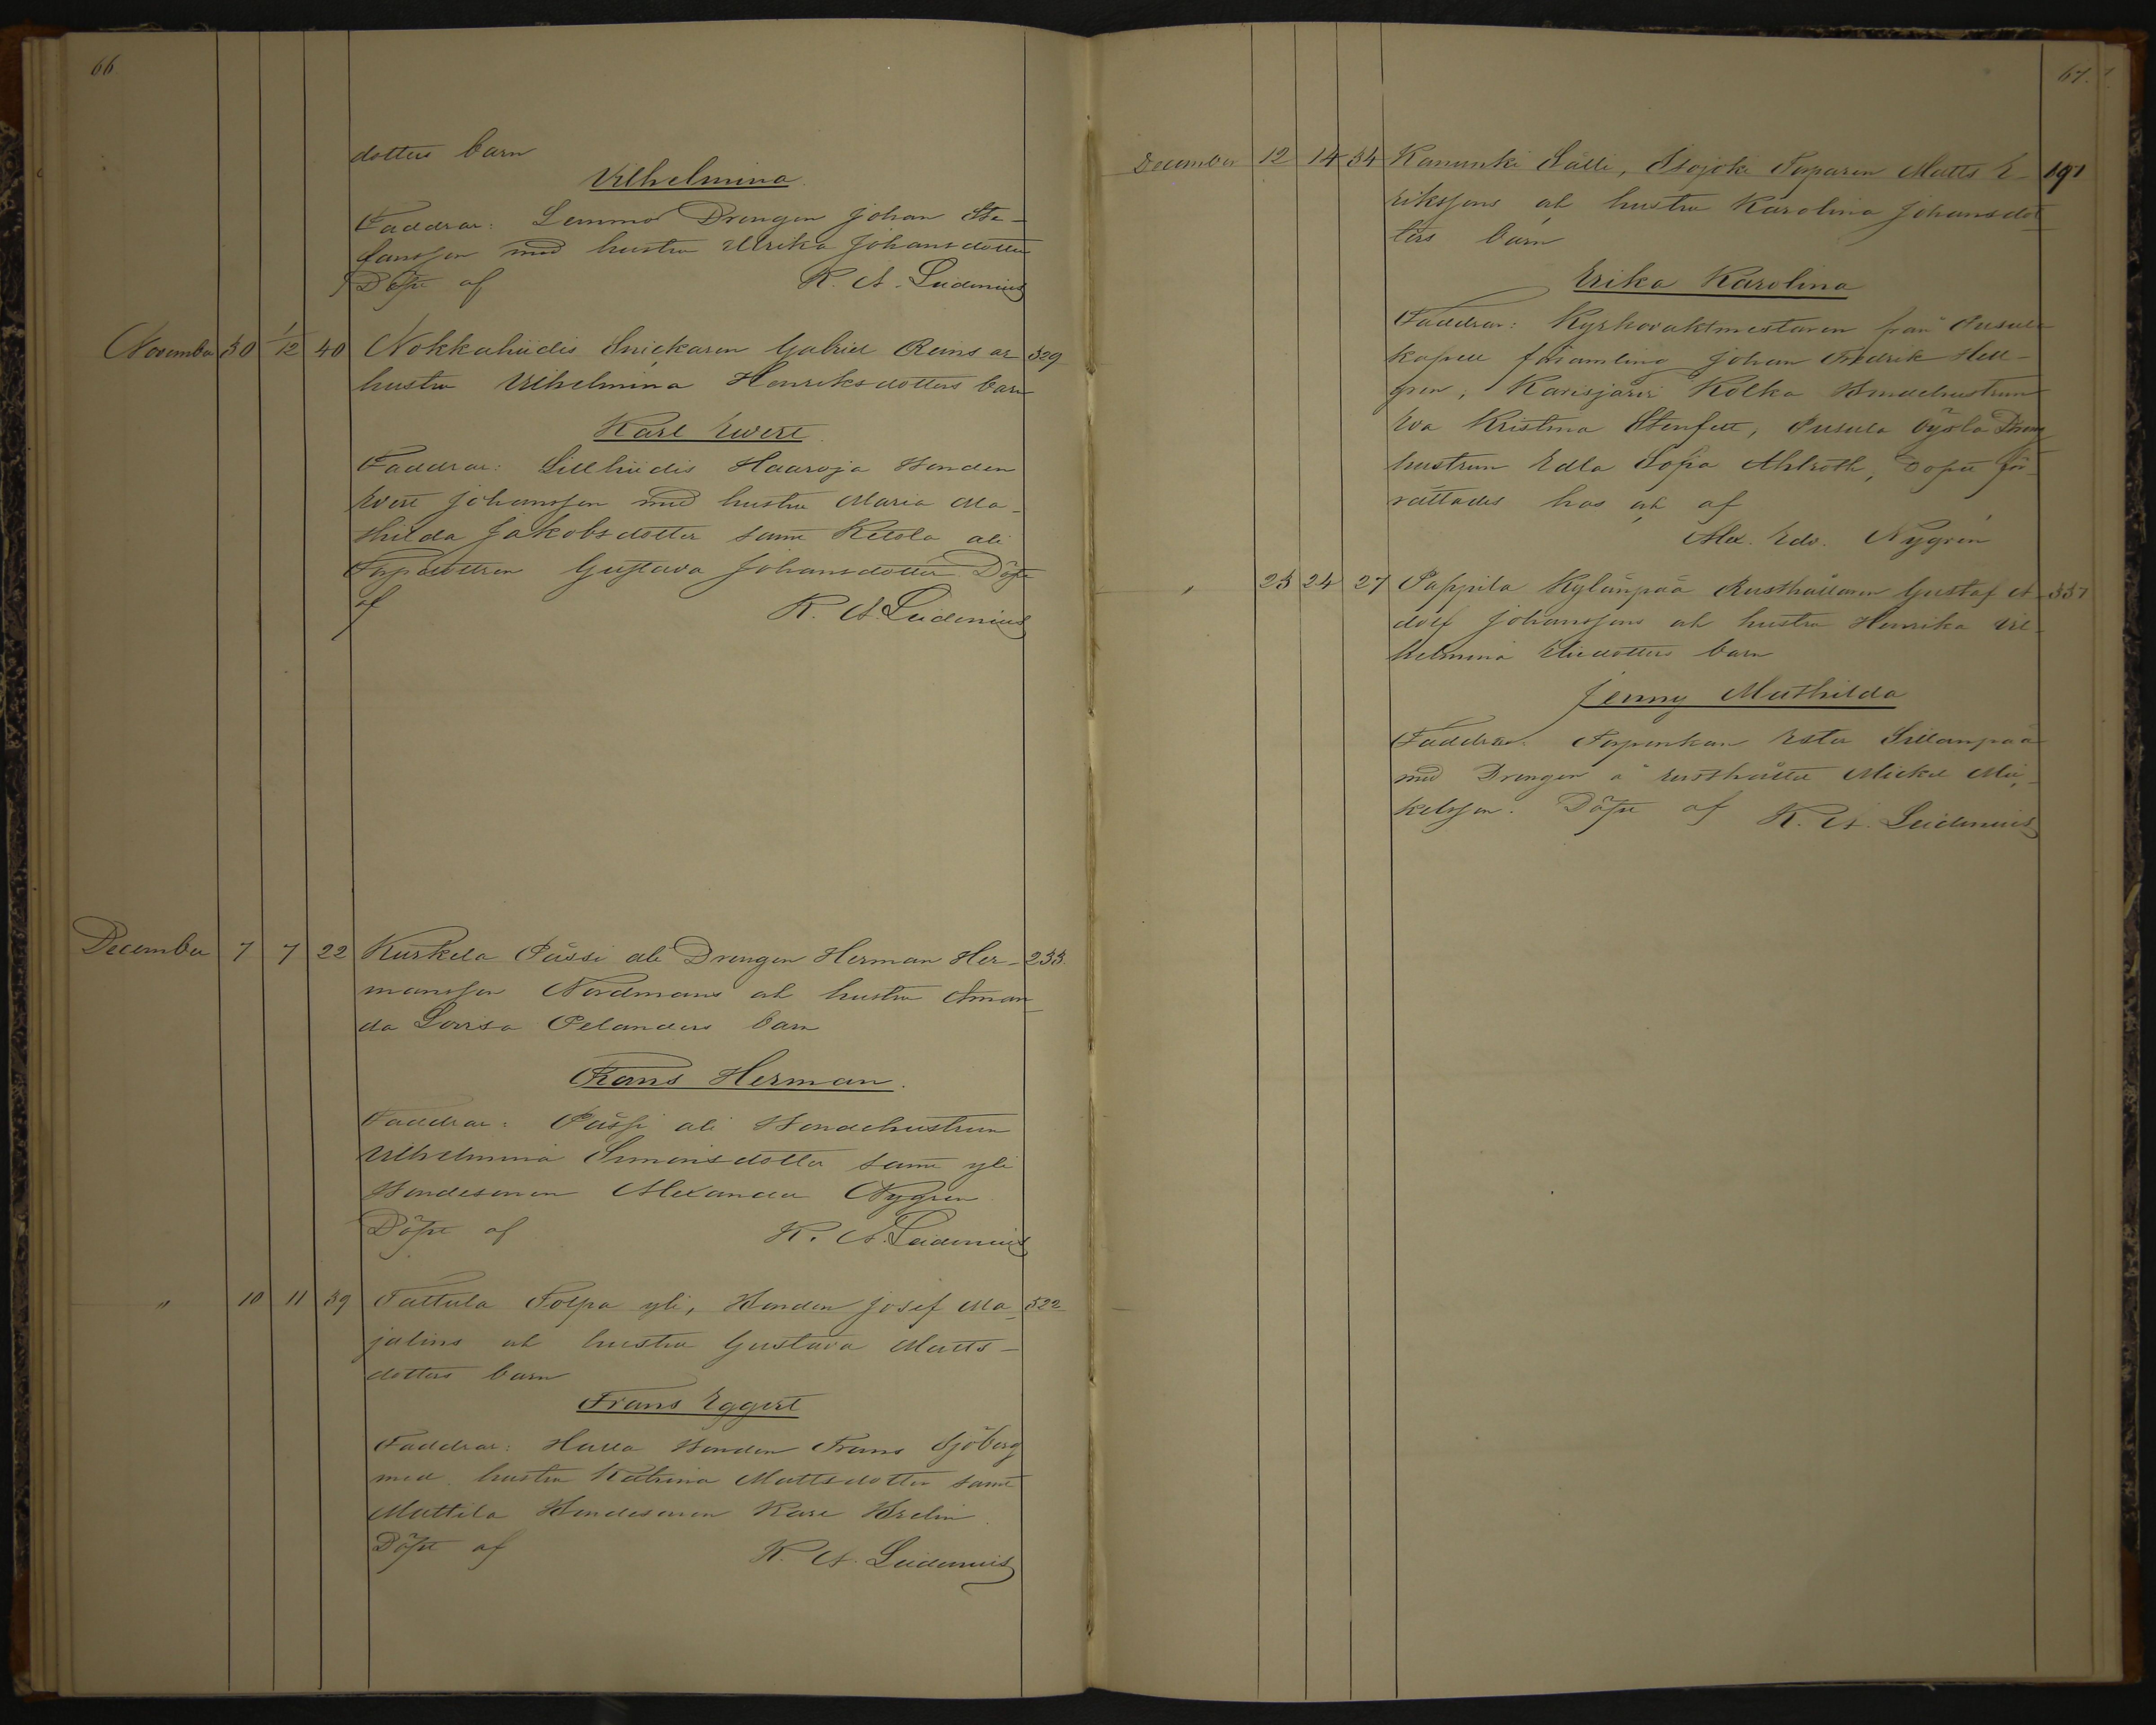 66
dotters barn
Vilhelmina.
Faddrar: Lemmo Drengen Johan Ste-
fansson med hustru Ulrika Johansdotter
Döpt af K. A. Leidenius
November 30 1/12 40 Nokkahiidis Snickaren Gabriel Reins o. 329
hustru Vilhelmina Henriksdotters barn
Karl Evert.
Faddrar: Lillhiidis Haaroja Bonden
Evert Johansson med hustru Maria Ma-
thilda Jakobsdotter samt Ketola ali
Torpdottren Gustava Johansdotter. Döpt
af K. A. Leidenius
December 7 7 22 Kurkela Pässi ali Drengen Herman Her- 233.
mansson Nordmans och hustru Aman-
da Lovisa Pelanders barn
Frans Herman.
Faddrar: Pässi ali Bondehustrun
Vilhelmina Simonsdotter samt yli
Bondesonen Alexander Nygren
Döpt af K. A. Leidenius
" 10 11 39 Tattula Tolpa yli, Bonden Josef Ma- 322
jalins och hustru Gustava Matts-
dotters barn
Frans Eggert
Faddrar: Halla Bonden Frans Sjöberg
med hustru Katrina Mattsdotter samt
Mattila Bondesonen Karl Brelin.
Döpt af K. A. Leidenius
67.
December 12 14 34 Kanunki Sälli, Isojoki Torparen Matts E- 191
rikssons och hustru Karolina Johansdot-
ters barn
Erika Karolina
Faddrar: Kyrkovaktmestaren från Pusula
kapell församling Johan Fredrik Hell-
gren, Karisjärvi Kolka Bondehustrun
Eva Kristina Stenfelt, Pusula Öyölä Dreng
hustrun Edla Sofia Ahlroth, Dopet för-
rättades hos och af
Alex. Edv. Nygrén
" 23 24 27 Pappila Kylänpää Rusthållaren Gustaf A- 337
dolf Johanssons och hustru Henrika Vil-
helmina Eliedotters barn
Jenny Mathilda
Faddrar: Torpenkan Ester Sillanpää
med Drengen å rusthållet Mickel Mic-
kelsson. Döpt af K. A. Leidenius